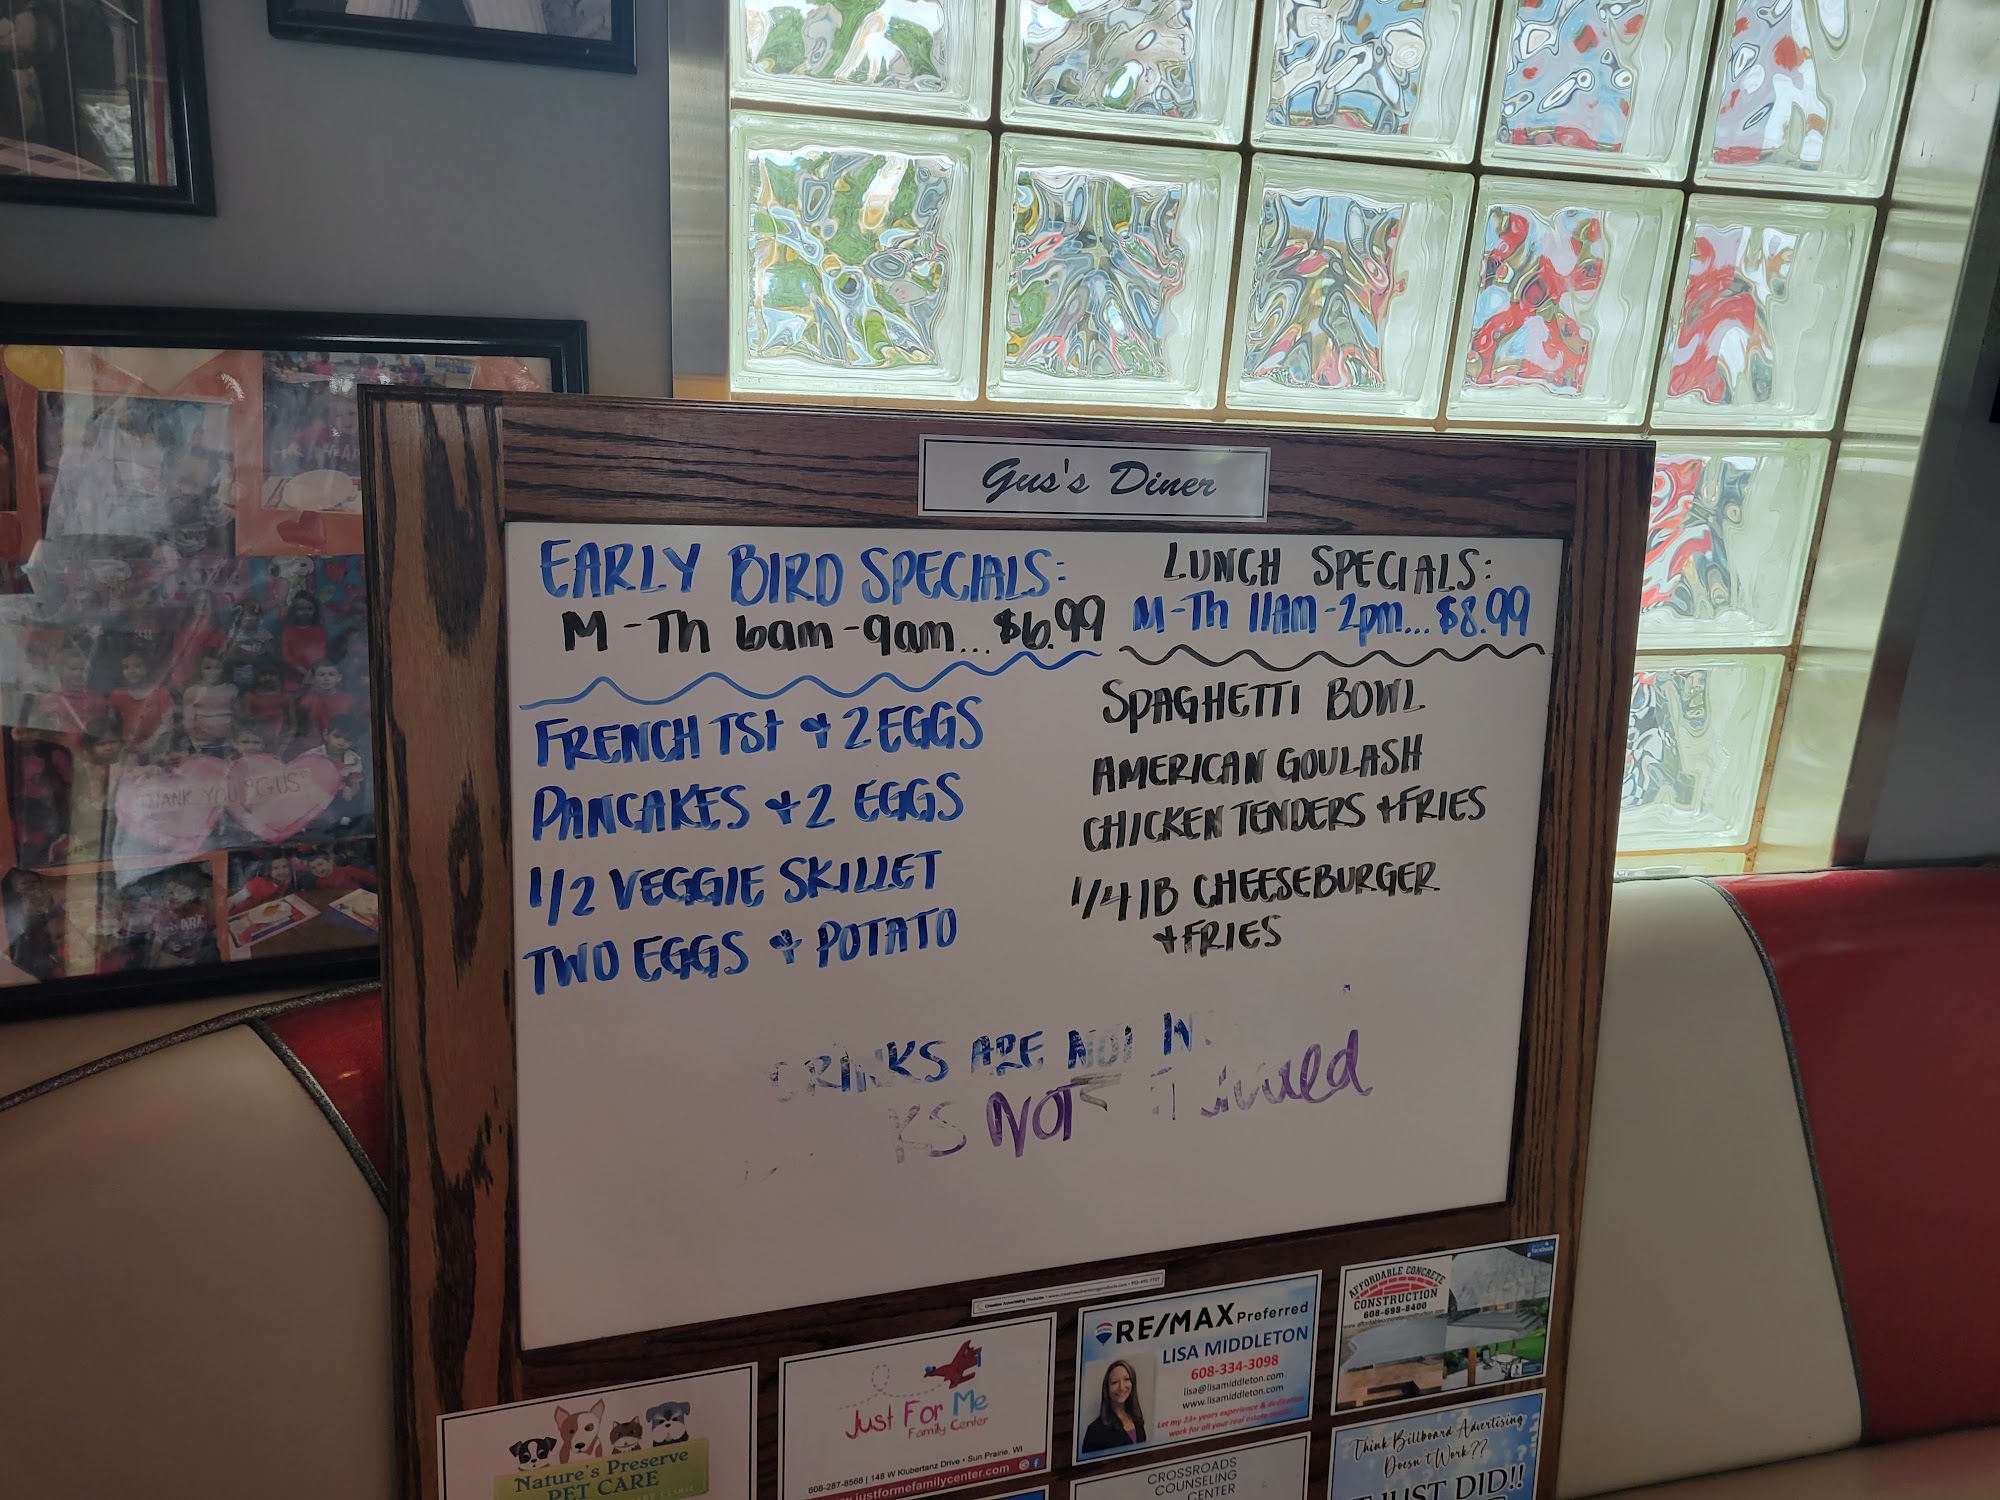 Gus's Diner
EARLY BIRD SPECIALS:
M-Th 6am-9am...$6.99
FRENCH TSt + 2 EGGS
PANCAKES + 2 EGGS
1/2 VEGGIE SKILLET
TWO EGGS + POTATO
LUNCH SPECIALS:
M-Th 11AM-2pm...$8.99
SPAGHETTI BOWL
AMERICAN GOULASH
CHICKEN TENDERS + FRIES
1/4 lB CHEESEBURGER
+ FRIES
DRINKS ARE NOT IN
KS NOT
THANK YOU "GUS"
Nature's Preserve
PET CARE
Just For Me
Family Center
608-287-8568 | 148 W Klubertanz Drive • Sun Prairie, WI
www.justformefamilycenter.com
RE/MAX Preferred
LISA MIDDLETON
608-334-3098
lisa@lisamiddleton.com
www.lisamiddleton.com
Let my 23+ years experience & dedication
work for all your real estate needs!
AFFORDABLE CONCRETE
CONSTRUCTION
608-698-8400
facebook
CROSSROADS
COUNSELING
CENTER
Think Billboard Advertising
Doesn't Work??
JUST DID!!